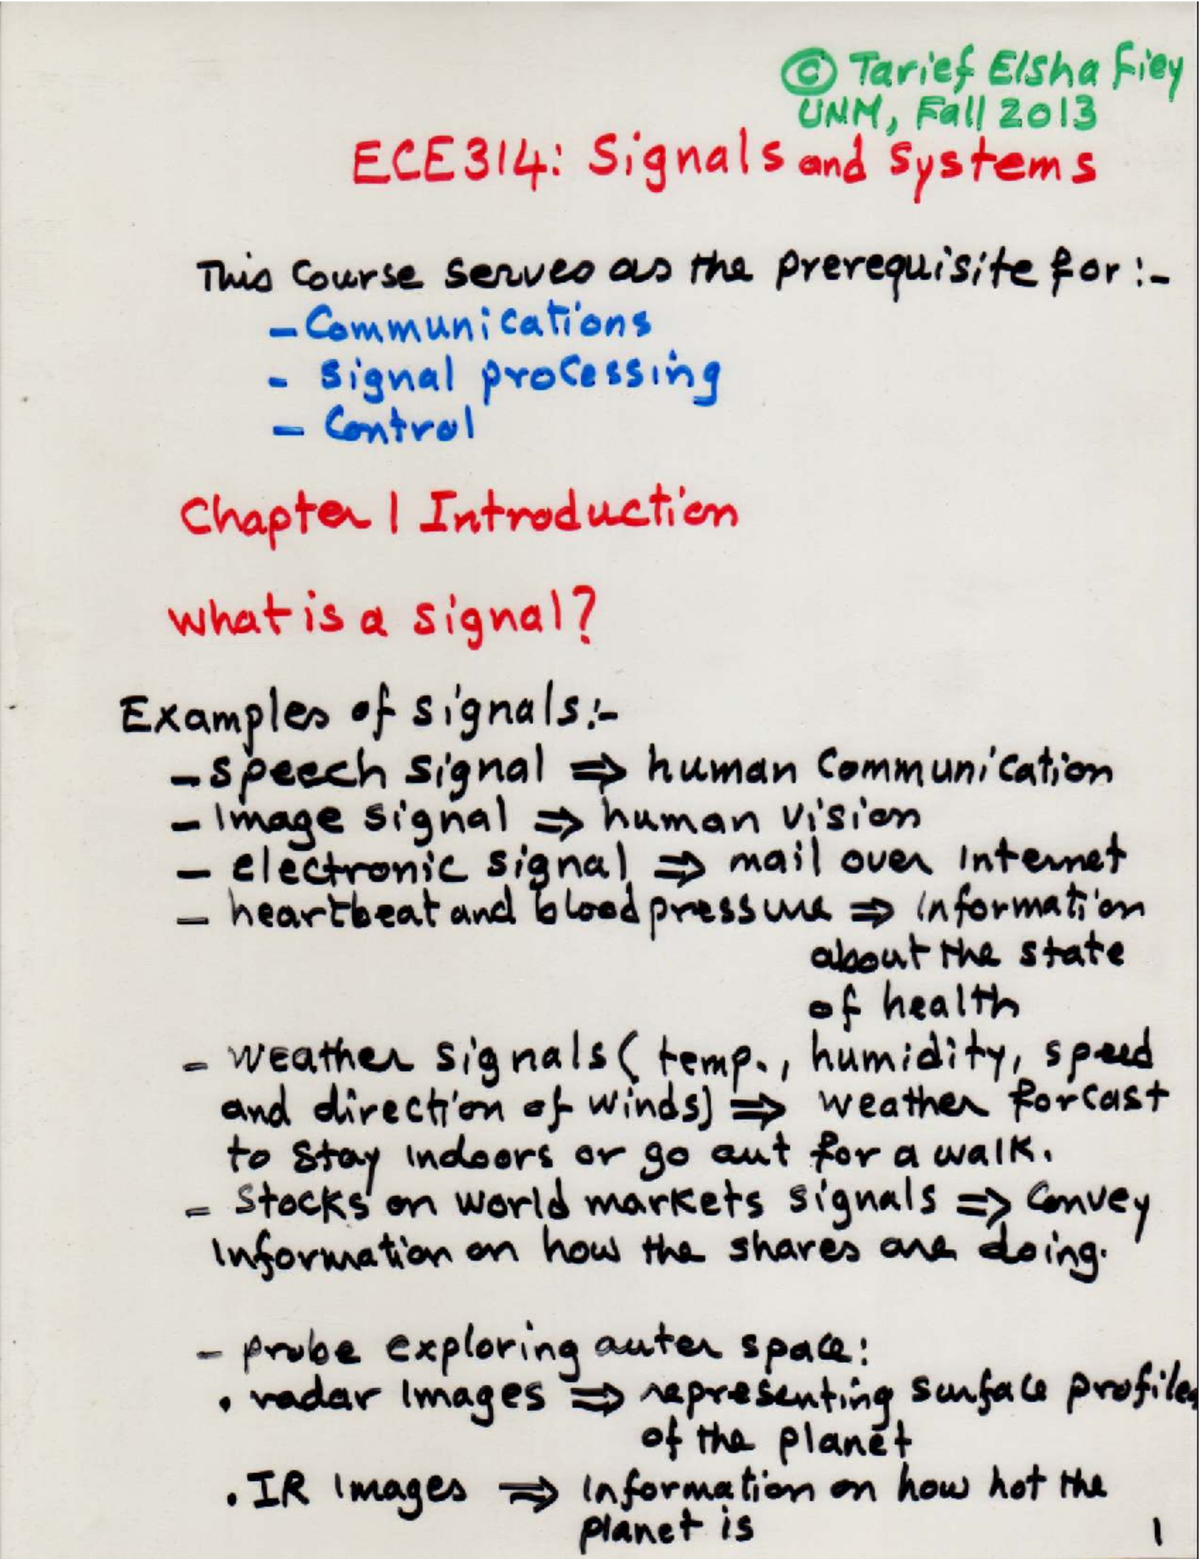 © Tarief Elshafiey
UNM, Fall 2013
ECE314: Signals and Systems
This Course serves as the prerequisite for:-
- Communications
- Signal processing
- Control
Chapter 1 Introduction
what is a signal?
Examples of signals:-
- speech signal ⇒ human Communication
- Image signal ⇒ human vision
- electronic signal ⇒ mail over Internet
- heartbeat and blood pressure ⇒ information
about the state
of health
- weather signals (temp., humidity, speed
and direction of winds) ⇒ weather forcast
to stay indoors or go out for a walk.
- Stocks on world markets signals ⇒ Convey
Information on how the shares are doing.
- probe exploring outer space:
. radar Images ⇒ representing surface profiles
of the planet
. IR Images ⇒ Information on how hot the
planet is
1